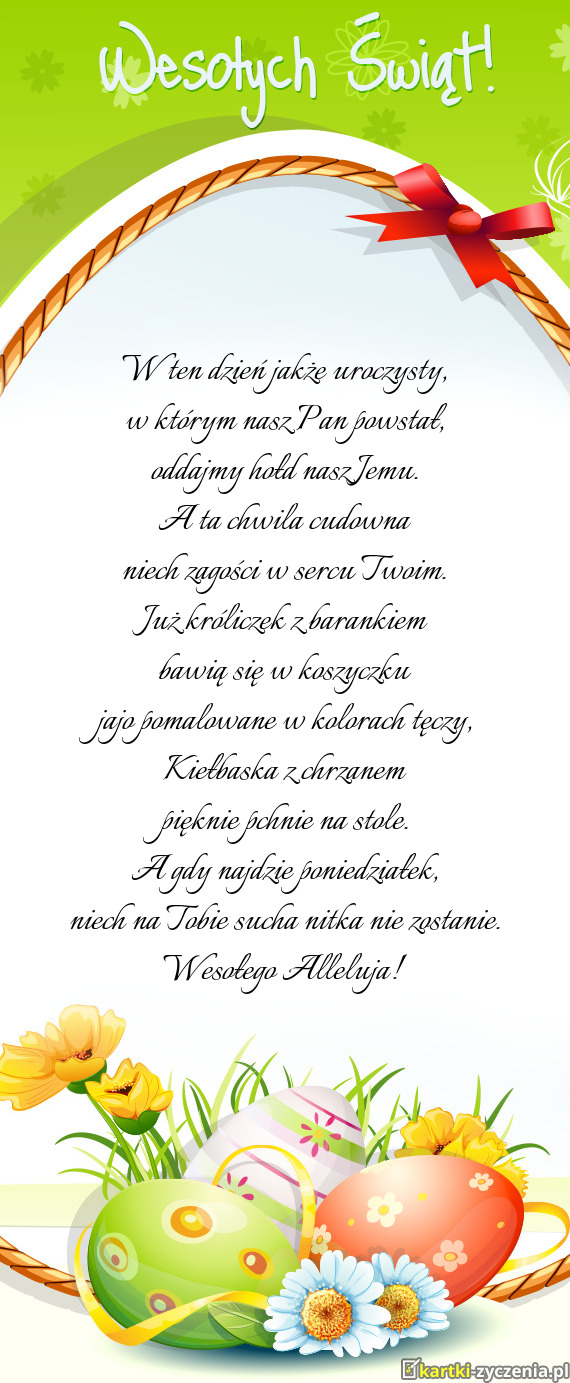 Wesołych Świąt!
W ten dzień jakże uroczysty,
w którym nasz Pan powstał,
oddajmy hołd nasz Jemu.
A ta chwila cudowna
niech zagości w sercu Twoim.
Już króliczek z barankiem
bawią się w koszyczku
jajo pomalowane w kolorach tęczy,
Kiełbaska z chrzanem
pięknie pchnie na stole.
A gdy najdzie poniedziałek,
niech na Tobie sucha nitka nie zostanie.
Wesołego Alleluja!
kartki-zyczenia.pl